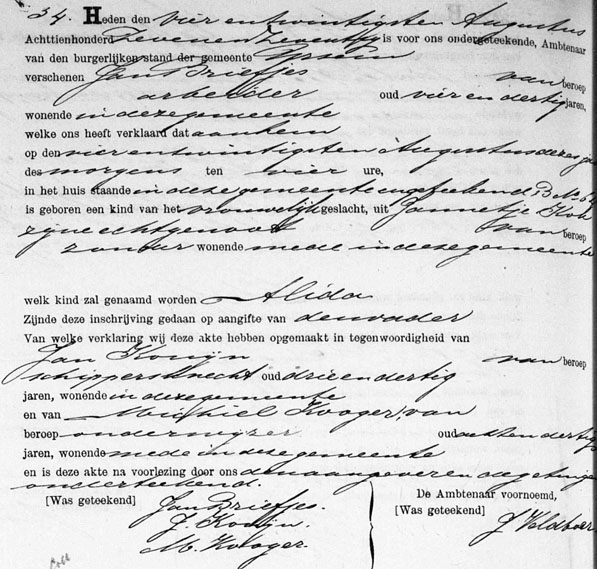 34. Heden den vier entwintigsten Augustus
Achttienhonderd Zevenen Zeventig is voor ons ondergeteekende, Ambtenaar
van den burgerlijken stand der gemeente
verschenen Jan Briefjes van beroep
arbeider oud vier en dertig jaren,
wonende in deze gemeente
welke ons heeft verklaard dat aan hem
op den vier entwintigsten Augustus dezes jaars
des morgens ten vier ure,
in het huis staande in deze gemeente ongeteekend B No. 64
is geboren een kind van het vrouwelijk geslacht, uit Jannetje Kok
zijne echtgenoot van beroep
zonder wonende mede in deze gemeente
welk kind zal genaamd worden Alida
Zijnde deze inschrijving gedaan op aangifte van den vader
Van welke verklaring wij deze akte hebben opgemaakt in tegenwoordigheid van
Jan Konijn van beroep
schippersknecht oud drieendertig
jaren, wonende in deze gemeente
en van Michiel Kooger, van
beroep onderwijzer oud achtendertig
jaren, wonende mede in deze gemeente
en is deze akte na voorlezing door ons den aangever en de getuigen
onderteekend.
[Was geteekend] Jan Briefjes.
J. Konijn.
M. Kooger.
De Ambtenaar voornoemd,
[Was geteekend]